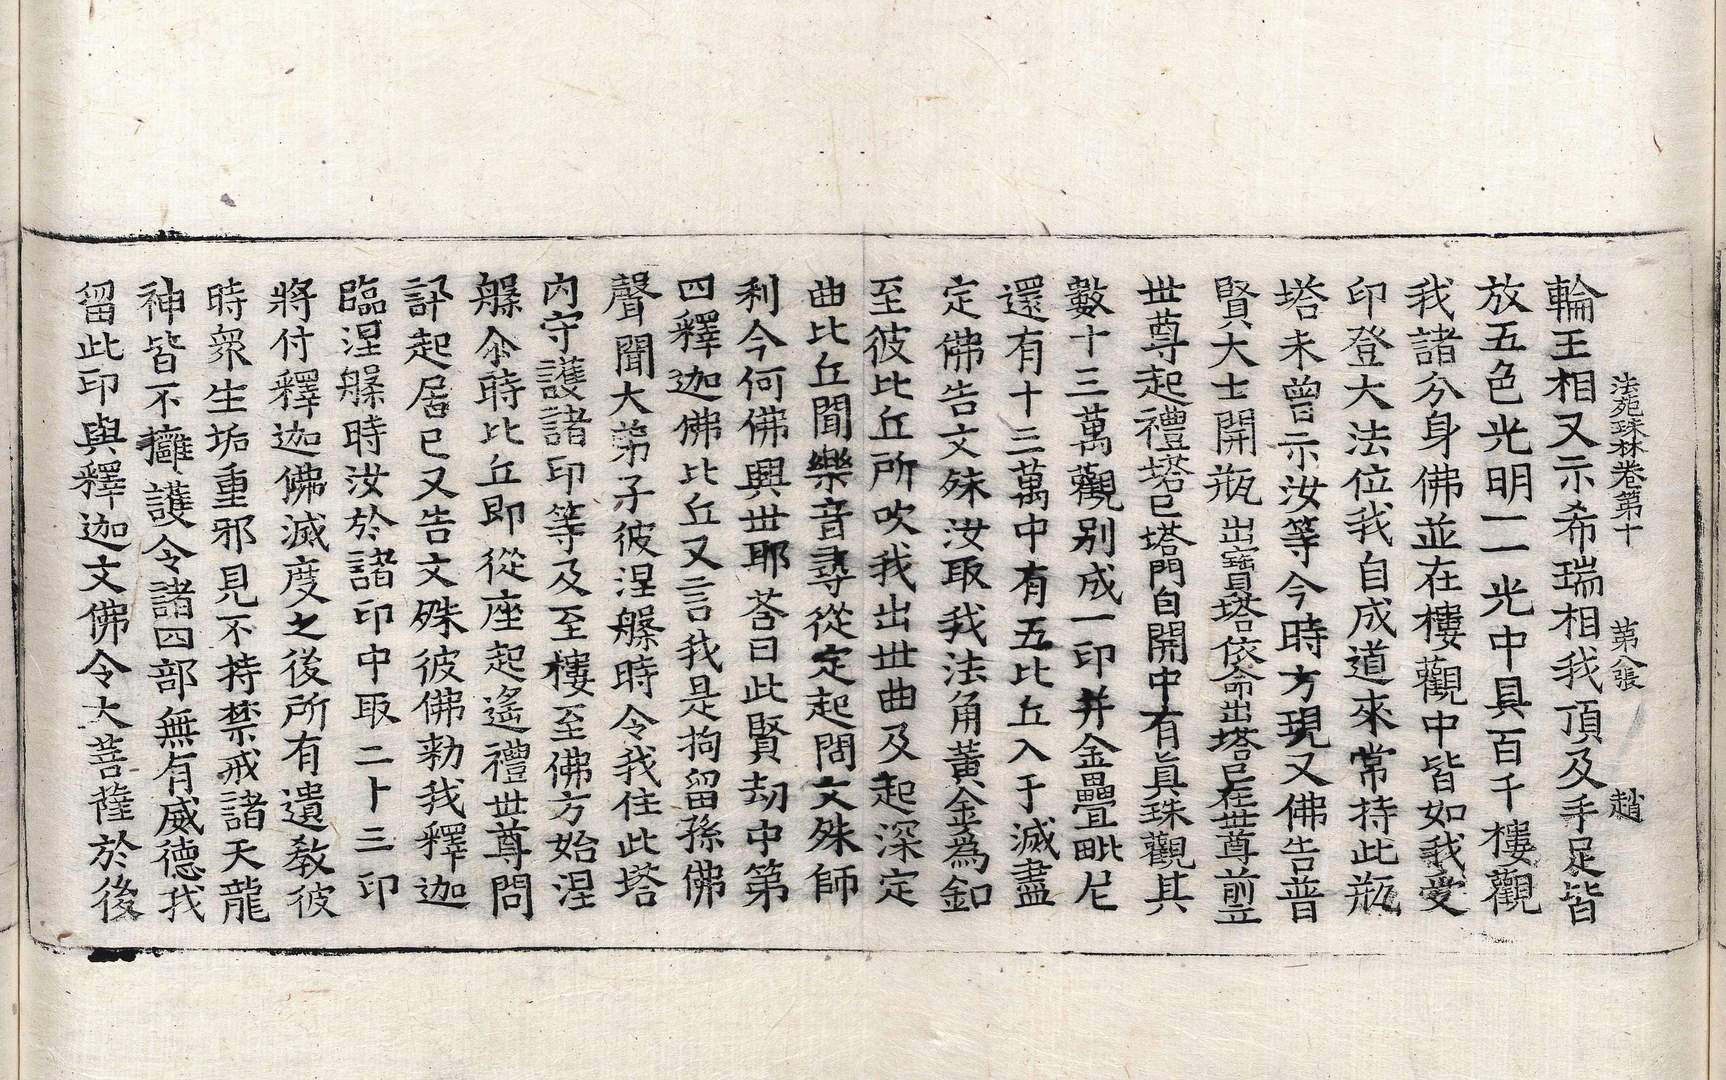 法苑珠林卷第十 第八張 趙
輪王相又示希瑞相我頂及手足皆
放五色光明一一光中具百千樓觀
我諸分身佛並在樓觀中皆如我受
印登大法位我自成道來常持此瓶
塔未曾示汝等今時方現又佛告普
賢大士開瓶出寶塔依命出塔已在世尊前立
世尊起禮塔已塔門自開中有真珠觀其
數十三萬觀別成一印并金疊毗尼
還有十三萬中有五比丘入于滅盡
定佛告文殊汝取我法角黃金為釦
至彼比丘所吹我出世曲及起深定
曲比丘聞樂音尋從定起問文殊師
利今何佛興世耶荅曰此賢劫中第
四釋迦佛比丘又言我是拘留孫佛
聲聞大弟子彼涅槃時令我住此塔
内守護諸印等及至樓至佛方始涅
槃尒時比丘即從座起遙禮世尊問
訃起居已又告文殊彼佛勑我釋迦
臨涅槃時汝於諸印中取二十三印
將付釋迦佛滅度之後所有遺教彼
時眾生垢重邪見不持禁戒諸天龍
神皆不擁護令諸四部無有威德我
留此印與釋迦文佛令大菩薩於後